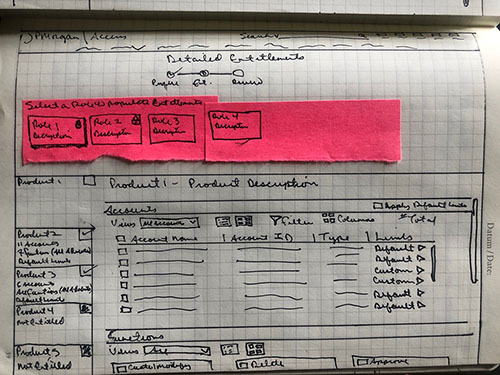 JPMorgan | Access Search
Detailed Entitlements
Profile Ent.
Select a Role to populate Entitlements
Role 1 Description
Role 2 Description
Role 3 Description
Role 4 Description
Product 1
Product 1 - Product Description
Accounts Apply Default Limits
View Filter Columns # Total
Account Name | Account ID | Type | Limits
Default
Default
Custom
Custom
Default
Default
Product 2
11 Accounts
Default Limits
Product 3
6 Accounts
Default Limits
Product 4
Not Entitled
Functions
Product 5
Not Entitled
View
Create/Modify Delete Approve